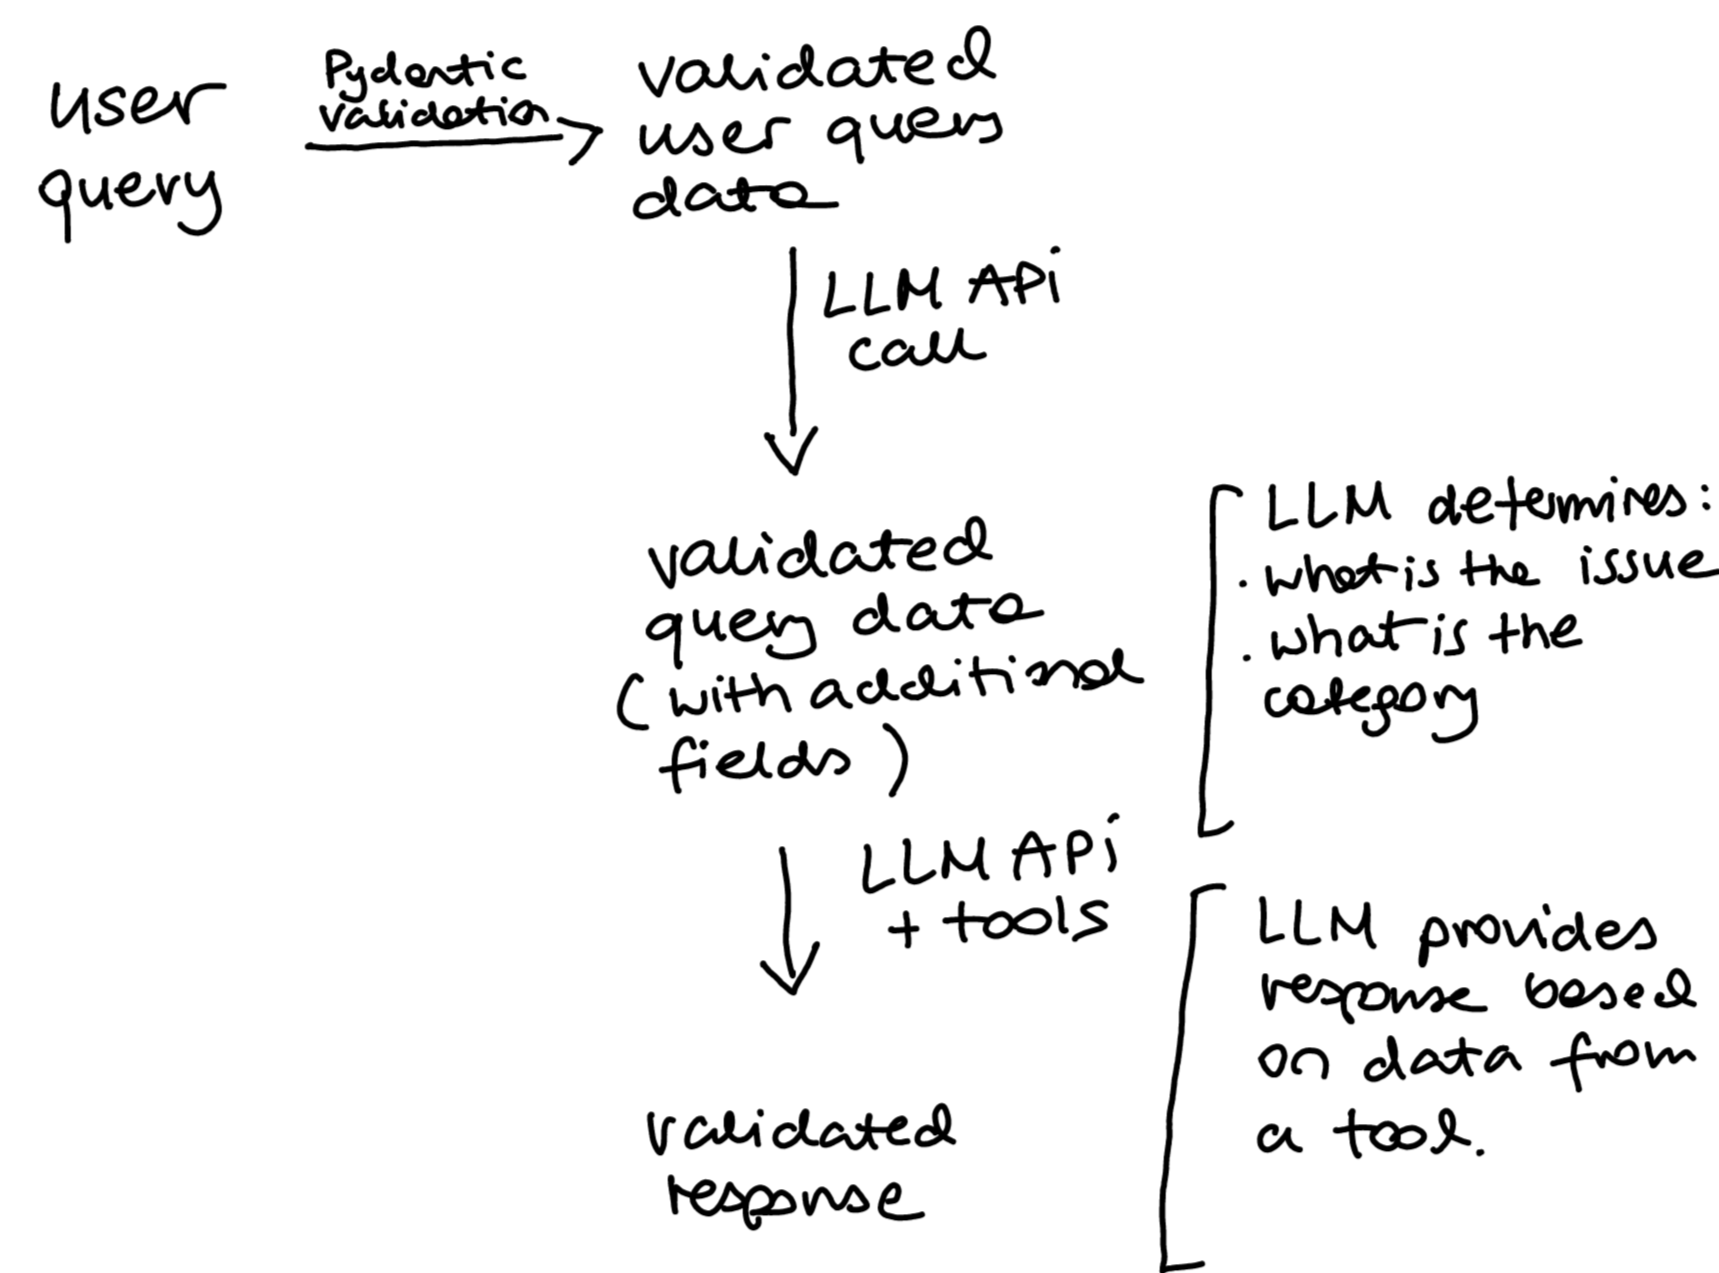 user
query
Pydantic
validation
validated
user query
data
LLM API
call
validated
query data
(with additional
fields)
LLM determines:
. what is the issue
. what is the
category
LLM API
+ tools
LLM provides
response based
on data from
a tool.
validated
response